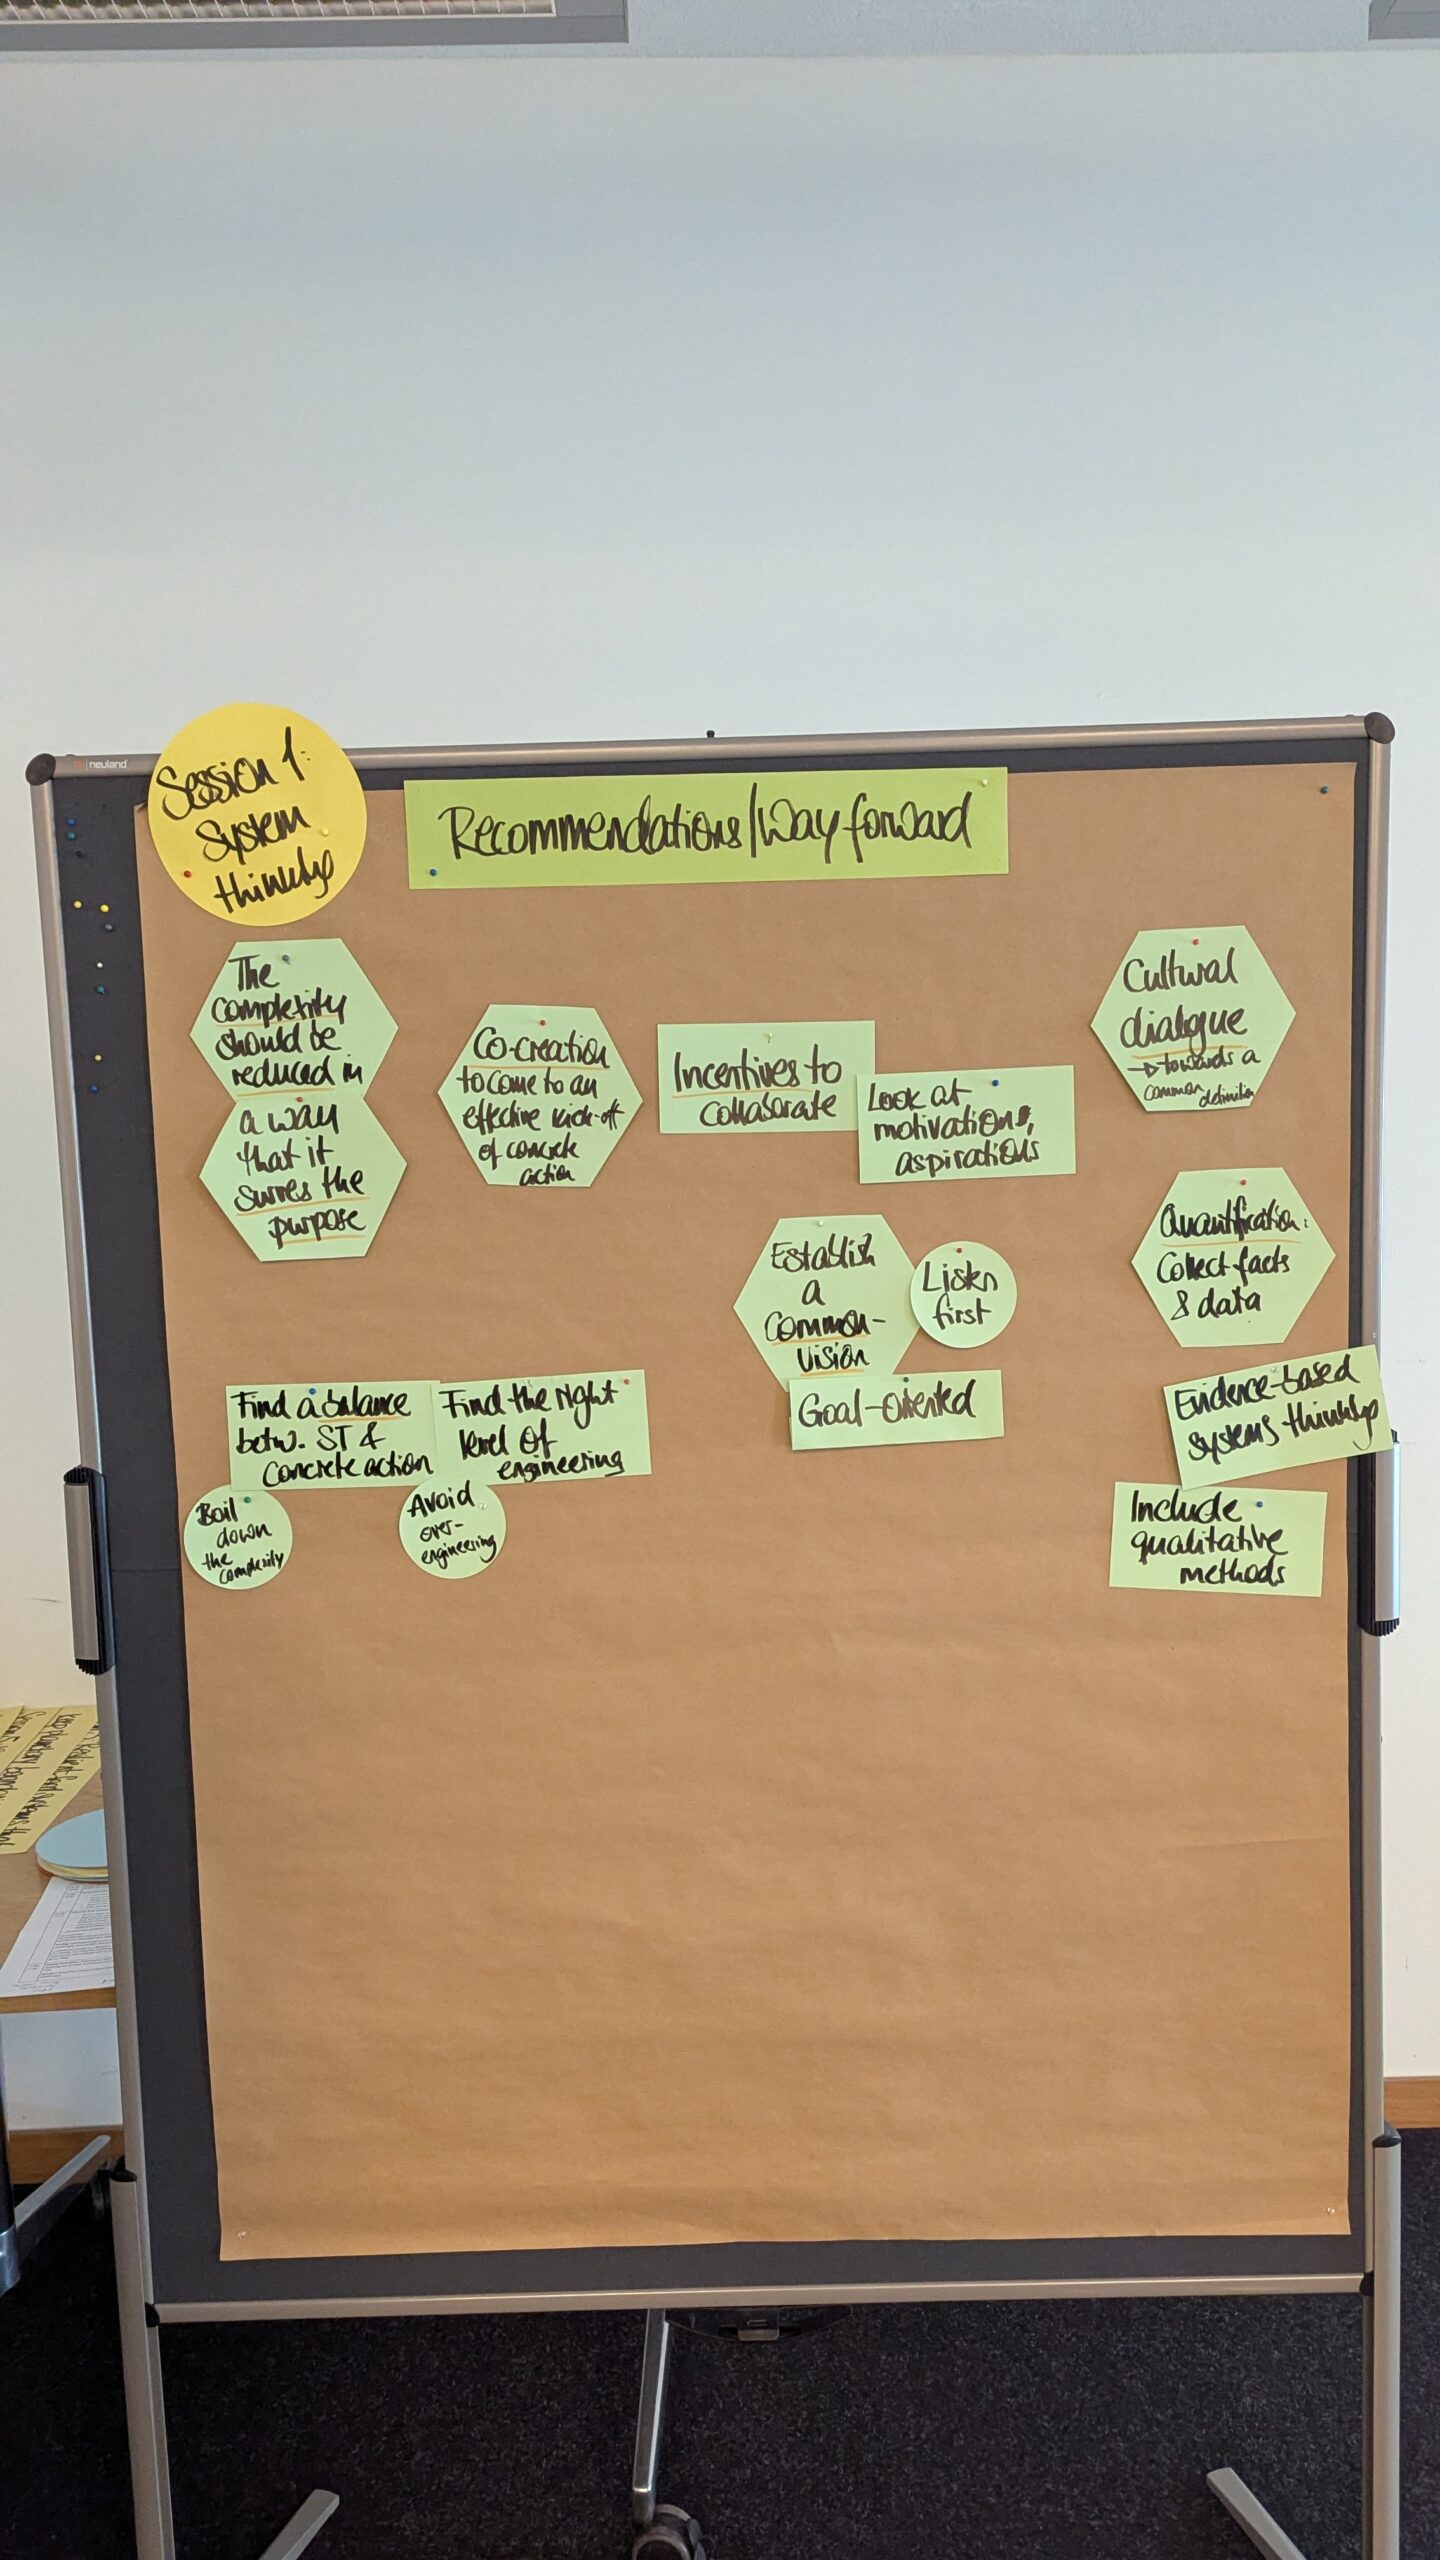 neuland
Session 1:
System
thinking
Recommendations/Way forward
The
complexity
should be
reduced in
a way
that it
serves the
purpose
Co-creation
to come to an
effective kick-off
of concrete
action
Incentives to
collaborate
Look at
motivations,
aspirations
Cultural
dialogue
→ towards a
common definition
Establish
a
common-
vision
Listen
first
Goal-oriented
Quantification:
Collect facts
& data
Evidence-based
systems thinking
Include
qualitative
methods
Find a balance
betw. ST &
Concrete action
Find the right
level of
engineering
Boil
down
the
complexity
Avoid
over-
engineering